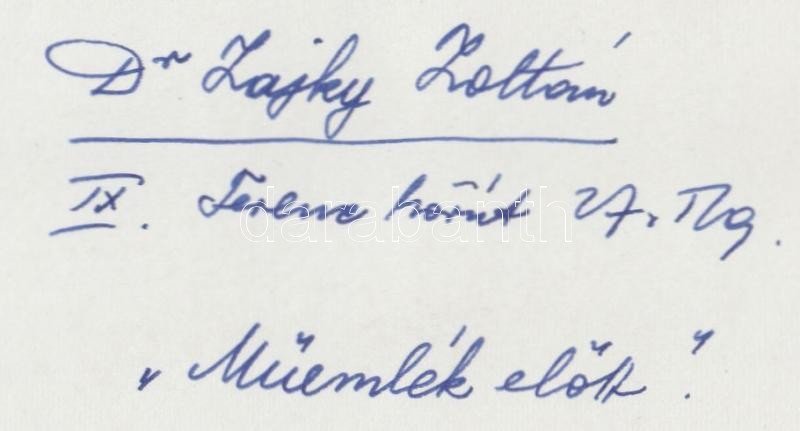 Dr Zajky Zoltán
IX. Ferenc körút 27. II 9.
darabanth
„Műemlék előtt".